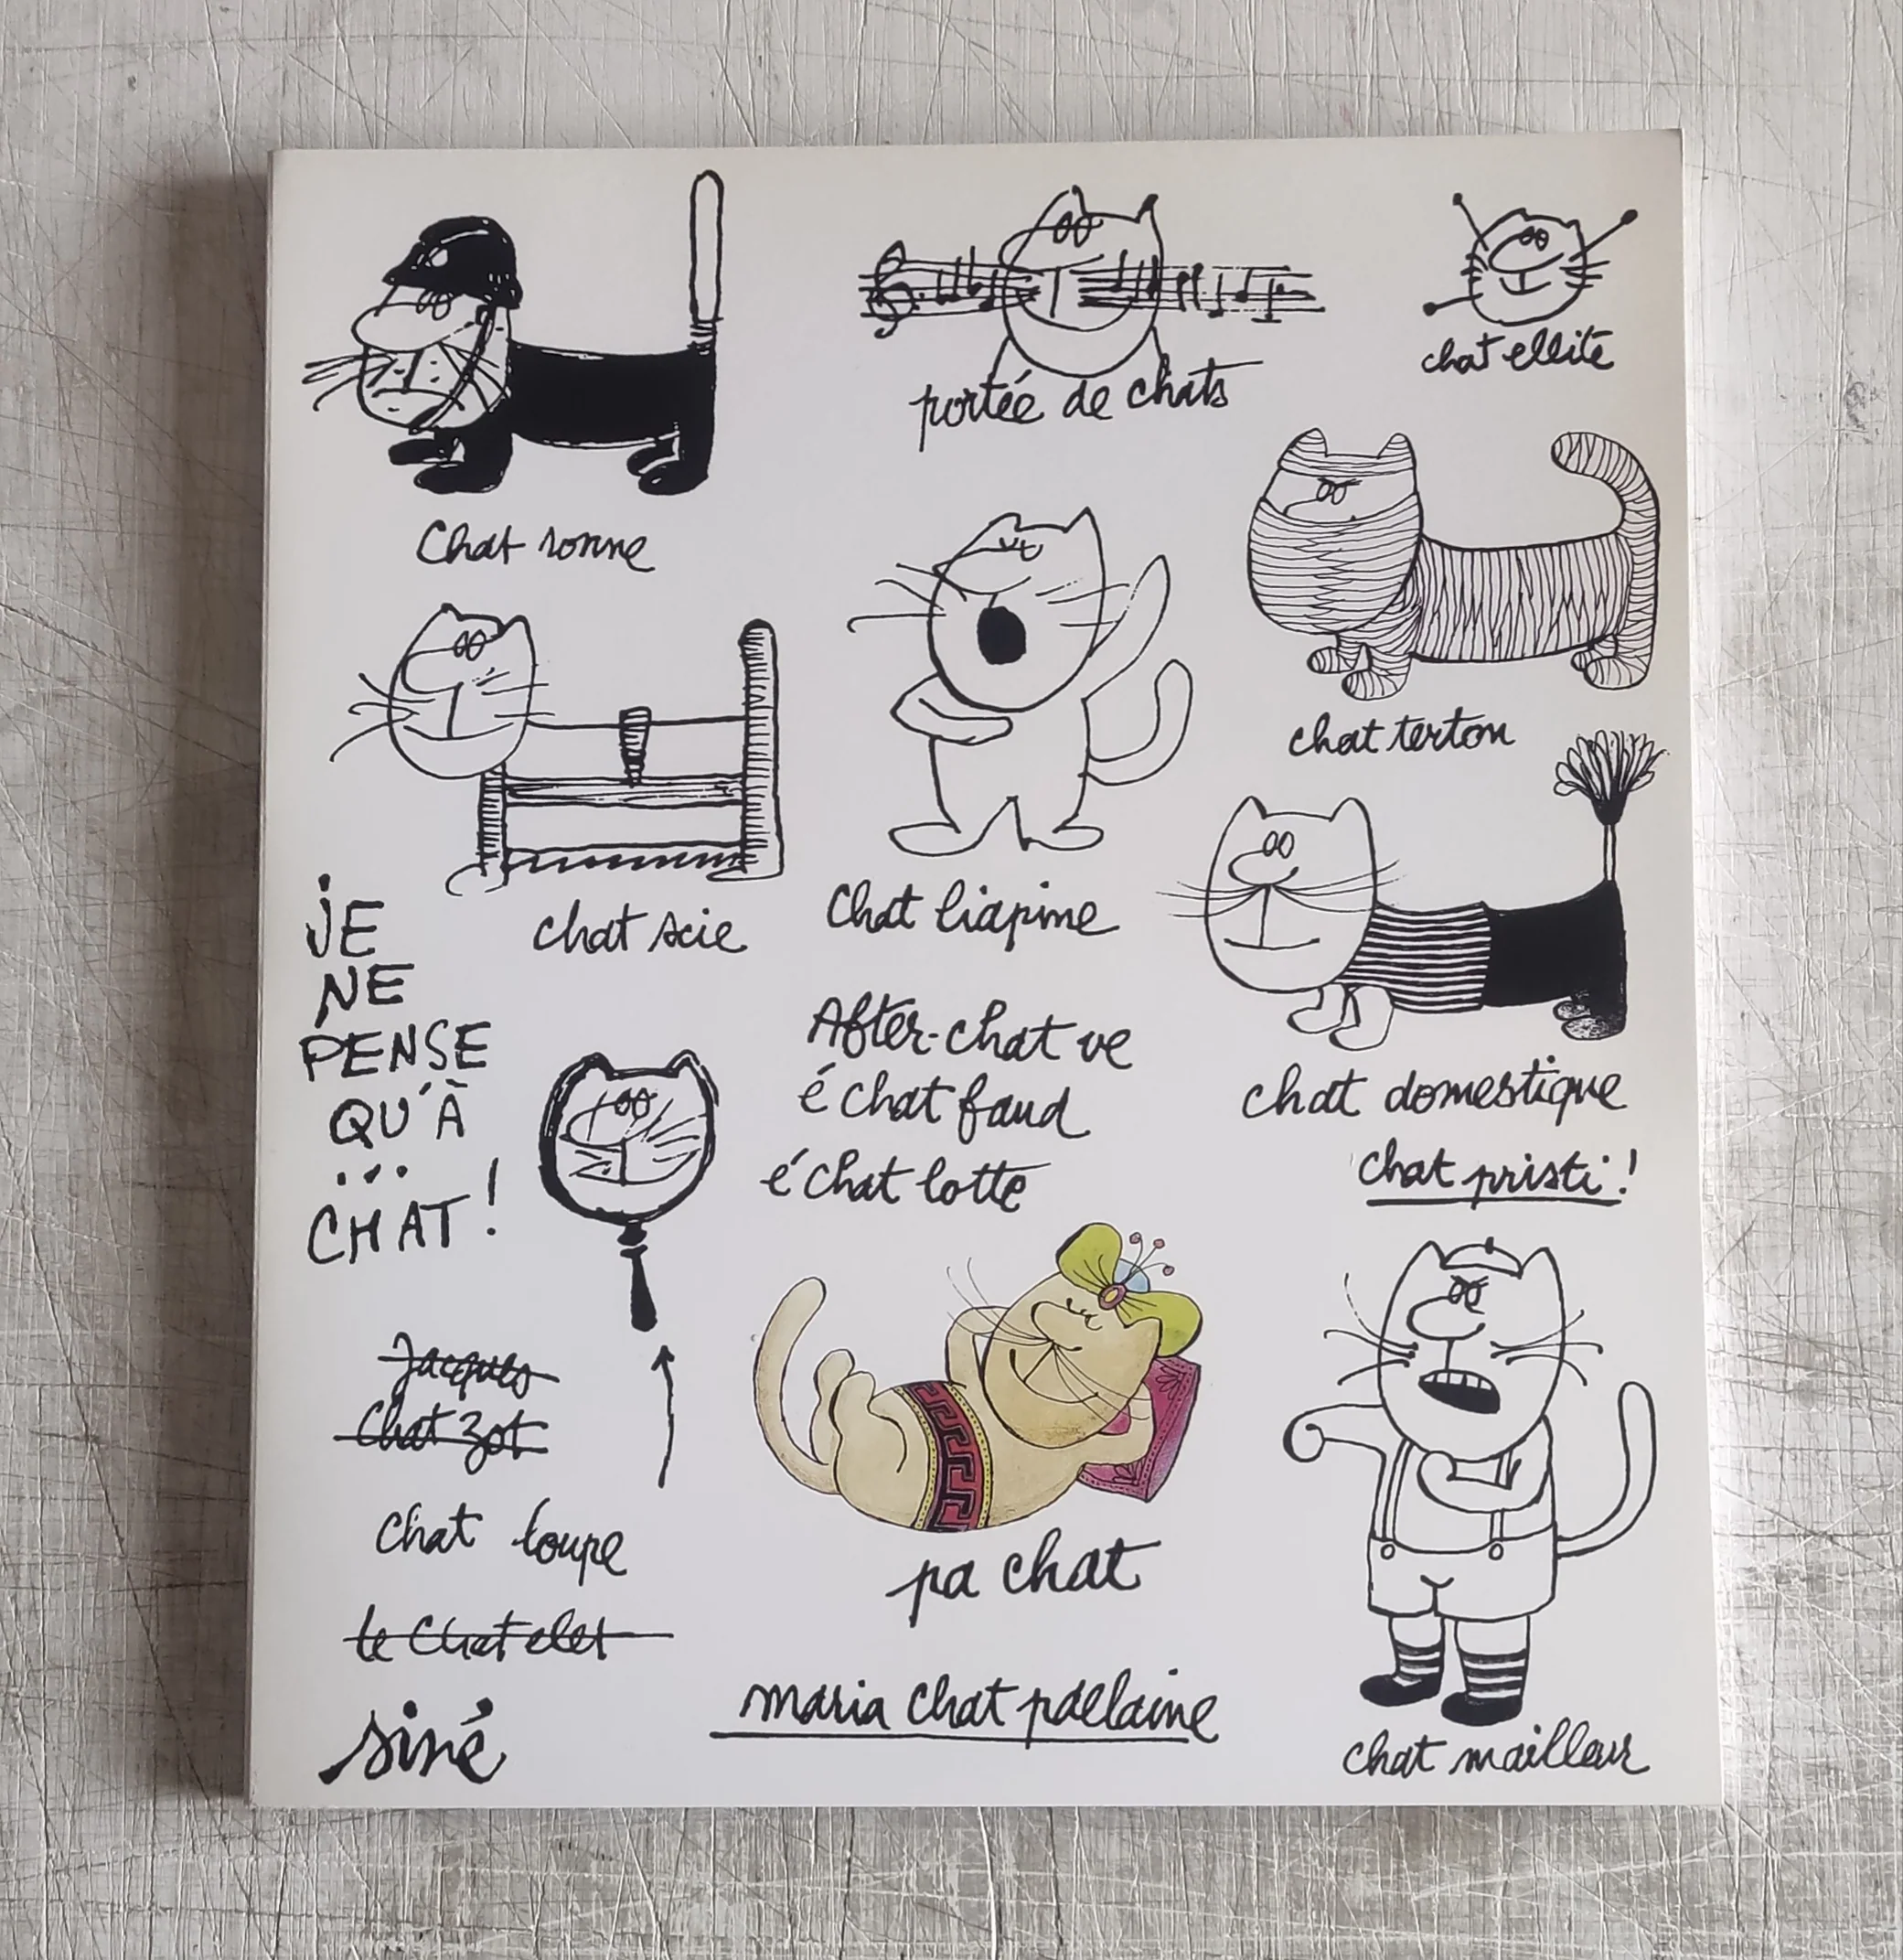 portée de chats
chat ellite
Chat ronne
chat terton
chat scie
Chat liapine
JE
NE
PENSE
QU'À
...
CHAT!
After-chat ve
é chat faud
é chat lotte
chat domestique
chat pristi!
Jacques
Chat zot
chat loupe
le Chat elet
siné
pa chat
maria chat pdelaine
chat mailleur